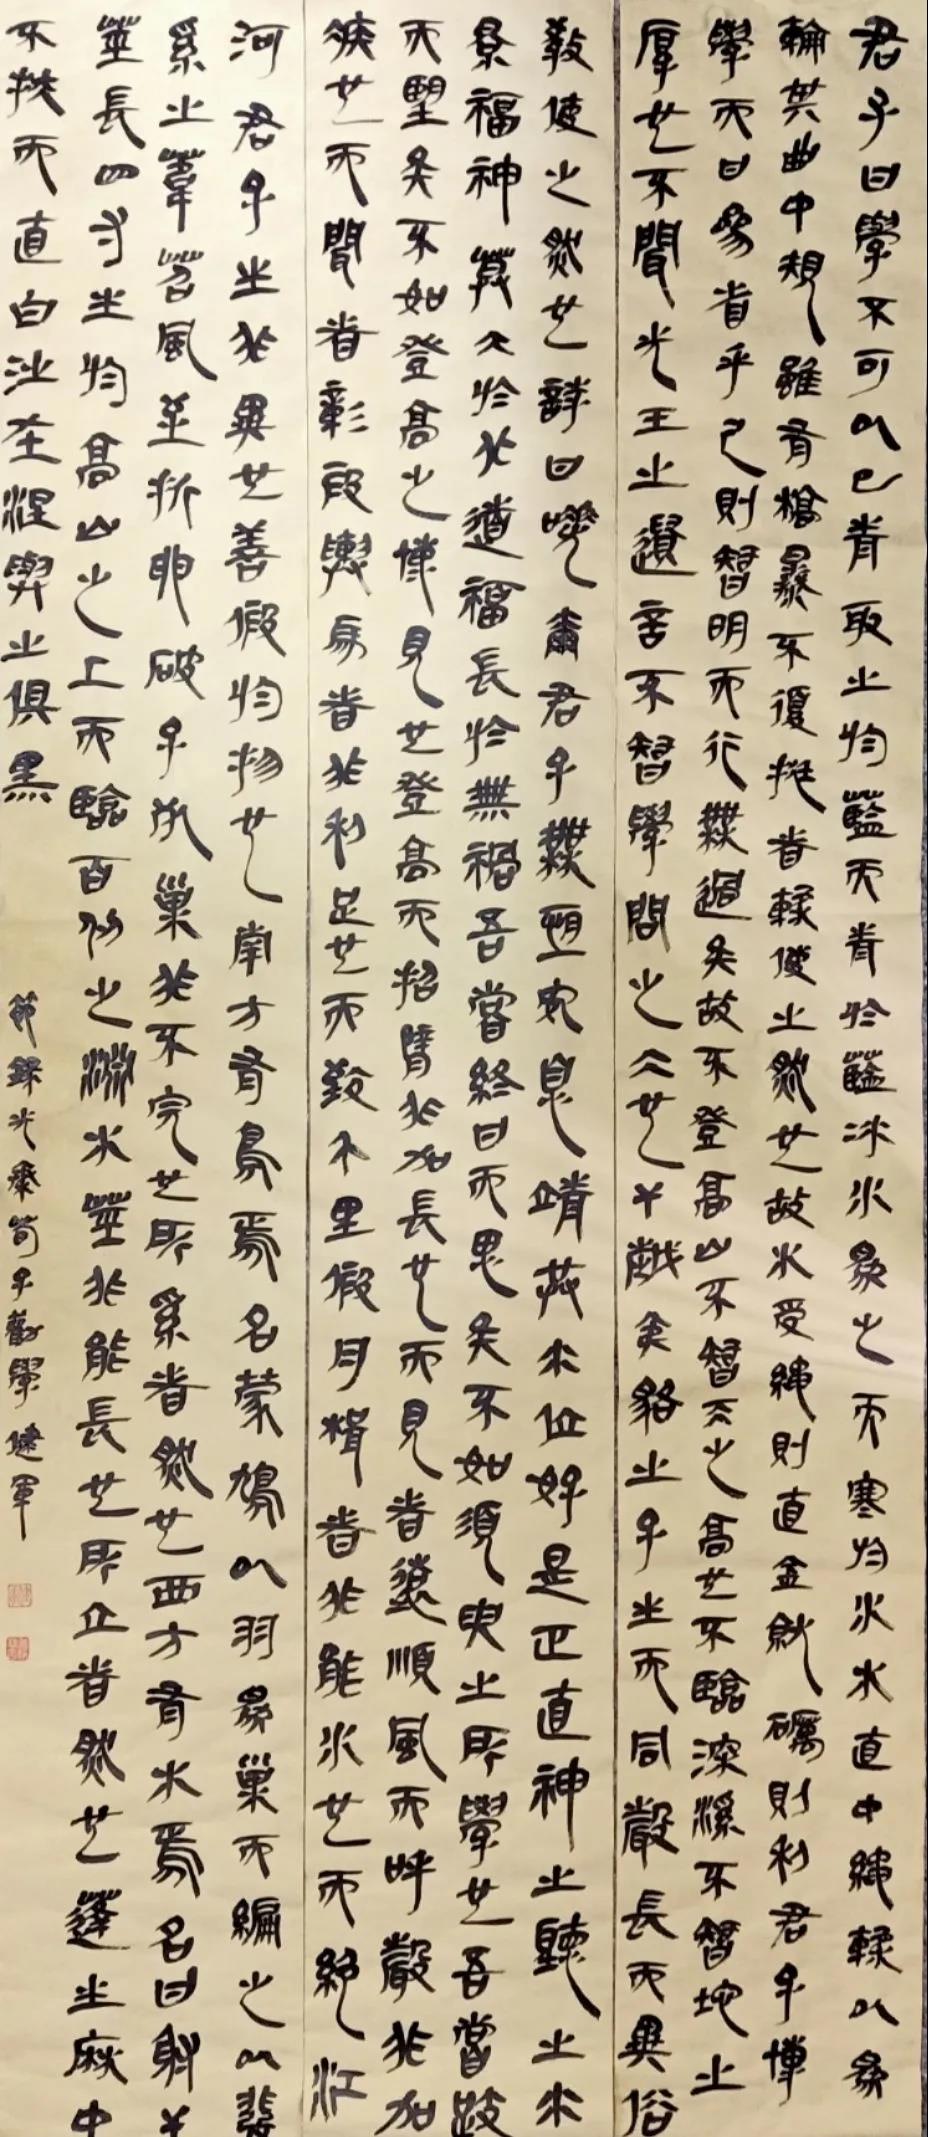 君子曰學不可以已青取之於藍而青於藍冰水為之而寒於水木直中繩輮以為
輪其曲中規雖有槁暴不復挺者輮使之然也故木受繩則直金就礪則利君子博
學而日參省乎己則智明而行無過矣故不登高山不智天之高也不臨深溪不智地之
厚也不聞先王之遺言不智學問之大也干越夷貉之子生而同聲長而異俗
教使之然也詩曰嗟爾君子無恒安息靖恭尔位好是正直神之聽之介
景福神莫大於化道福長於無禍吾嘗終日而思矣不如須臾之所學也吾嘗跂
而望矣不如登高之博見也登高而招臂非加長也而見者遠順風而呼聲非加
疾也而聞者彰假輿馬者非利足也而致千里假舟楫者非能水也而絕江
河君子生非異也善假於物也南方有鳥焉名蒙鳩以羽為巢而編之以髮
系之葦苕風至折卵破子死巢非不完也所系者然也西方有木焉名曰射干
莖長四寸生於高山之上而臨百仞之淵木莖非能長也所立者然也蓬生麻中
不扶而直白沙在涅與之俱黑
節錄先秦荀子勸學健軍